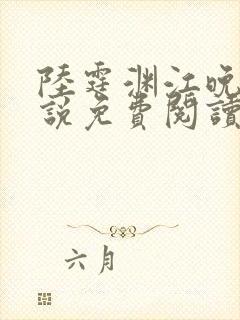 陸霆渊江晚
説免費閱讀
六月